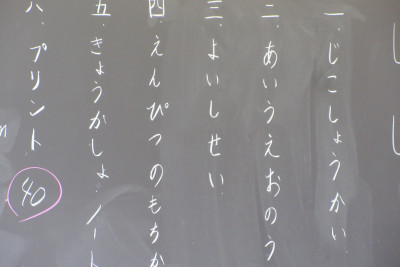 一.じこしょうかい
二.あいうえおのう
三.よいしせい
四.えんぴつのもちか
五.きょうかしょ.ノート
八.プリント 40